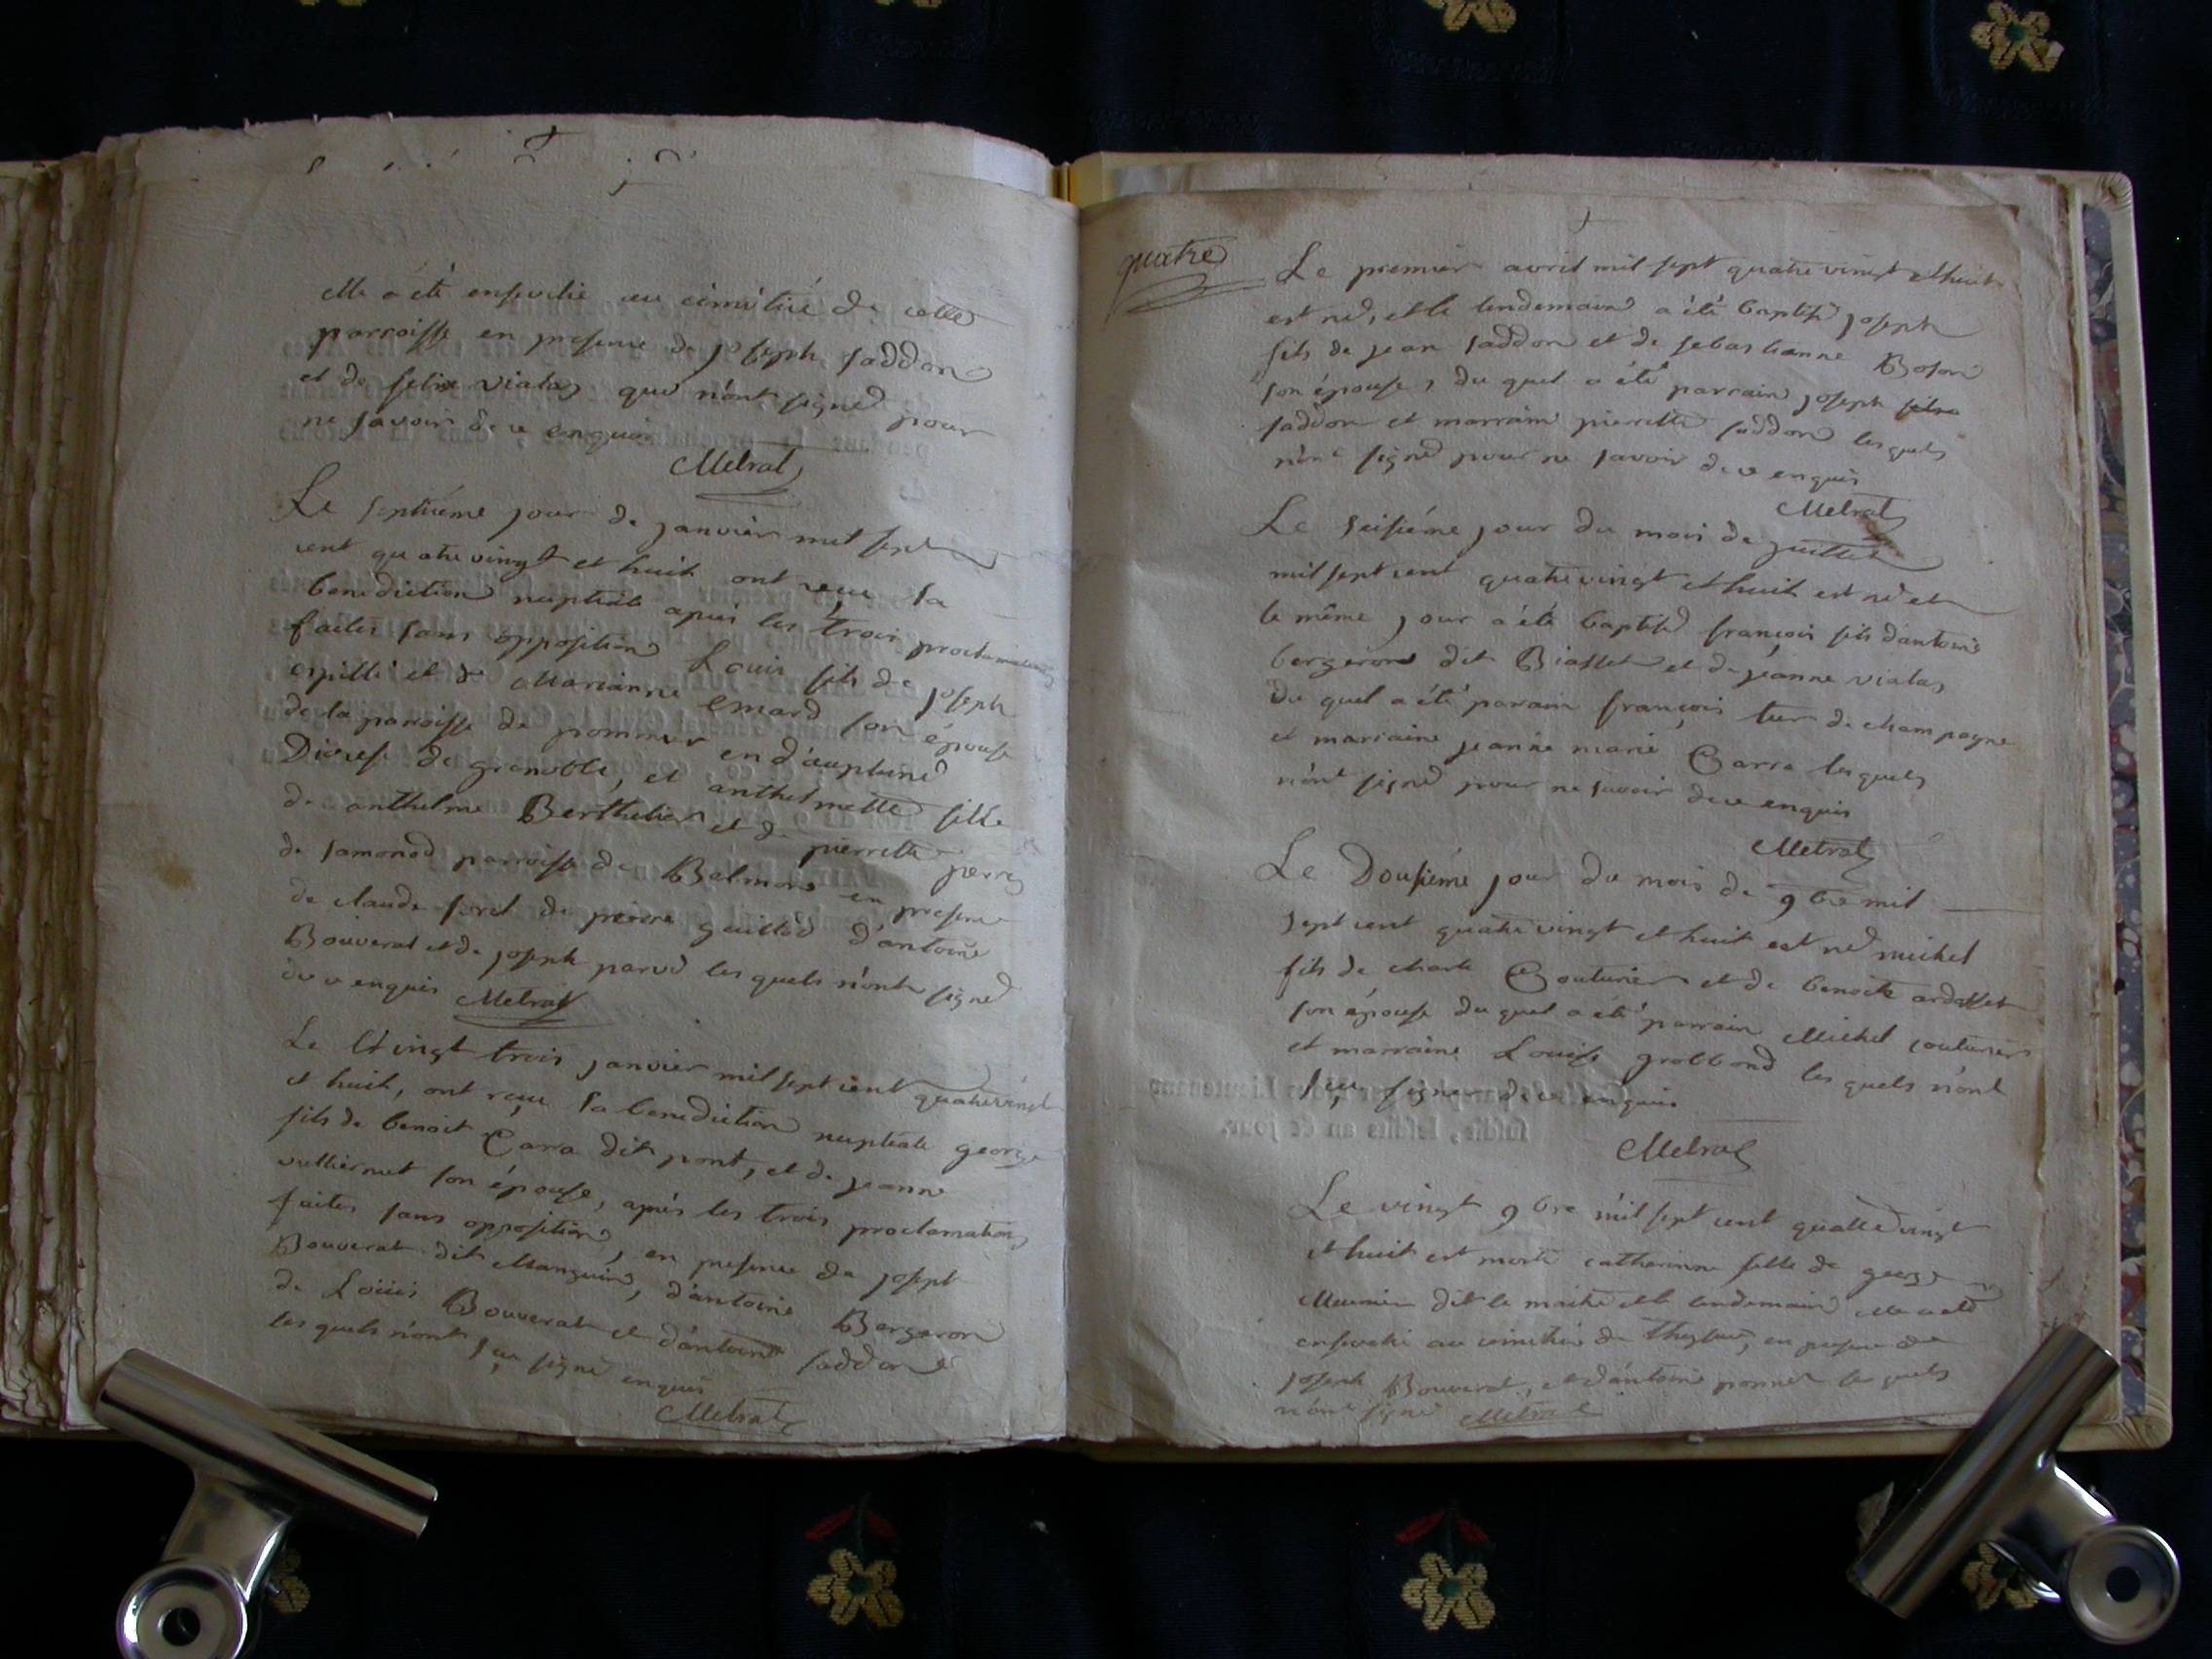 elle a été ensevelie au cimétiié de cette
parroisse en presence de joseph saddon
et de felix vialaz qui n'ont signed pour
ne savoir de ce enquis
Metraz
Le septiéme jour de janvier mil sept
cent quatre vingt et huit ont reçu la
benediction nuptiale apres les trois proclamations
faites sans opposition Louis fils de joseph
espitté et de Marianne Emard son épouse
de la paroisse de pommier en d'auphiné
Diocese de grenoble, et anthelmette fille
de anthelme Berthelier et de pierrette perre
de samonod parroisse de Belmont en presence
de claude de pierre guillod d'antoine
Bouverat et de joseph parud les quels n'ont signed
de ce enquis Metraz
Le Vingt trois janvier mil sept cent quatrevingt
et huit, ont reçu la benediction nuptiale george
fils de benoit Carra dit pont, et de jeanne
vulliermet son épouse, aprés les trois proclamations
faites sans opposition, en presence de joseph
Bouverat dit Manguin, d'antoine Bergeron
de Loüis Bouverat et d'antoine saddon
les quels n'ont sçu signé enquis
Metraz
quatre
Le premier avril mil sept quatre vingt et huit
est né, et le lendemain a été baptisé joseph
fils de jean saddon et de sebastianne Boson
son épouse, du quel a été parrain joseph
saddon et marraine pierrette saddon les quels
n'ont signed pour ne savoir de ce enquis
Metraz
Le seisiéme jour du mois de juillet
mil sept cent quatre vingt et huit est né et
le même jour a été baptisé françois fils d'antoine
bergeron dit Biasset et de jeanne vialaz
du quel a été parain françois tur de champagne
et marraine jeanne marie Carra les quels
n'ont signed pour ne savoir de ce enquis
Metraz
Le Dousiéme jour du mois de 9bre mil
sept cent quatre vingt et huit est né michel
fils de charle Couturier et de benoite ardasset
son épouse du quel a été parrain Michel couturier
et marraine Louise grobbond les quels n'ont
sçu signer de ce enquis
Metraz
Le vingt 9bre mil sept cent quatte vingt
et huit est morte catherinne fille de george
Meunier dit le maitre et le lendemain elle a été
ensevelie au cimetiré de en presence de
joseph Bouverat, et d'antoine ponnet les quels
n'ont signé Metraz